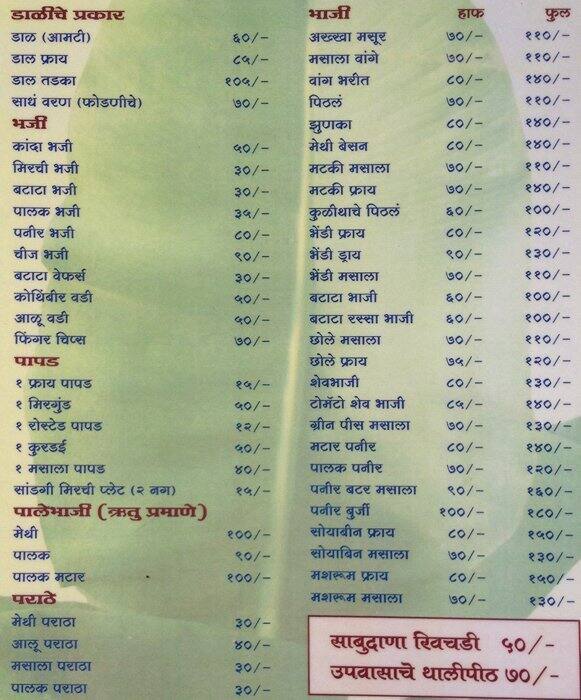 डाळीचे प्रकार
डाळ (आमटी) ६०/-
डाल फ्राय ८५/-
डाल तडका १०५/-
साधं वरण (फोडणीचे) ७०/-
भजी
कांदा भजी ५०/-
मिरची भजी ३०/-
बटाटा भजी ३०/-
पालक भजी ३५/-
पनीर भजी ८०/-
चीज भजी ९०/-
बटाटा वेफर्स ३०/-
कोथिंबीर वडी ५०/-
आळू वडी ५०/-
फिंगर चिप्स ७०/-
पापड
१ फ्राय पापड १५/-
१ मिरगुंड ५०/-
१ रोस्टेड पापड १२/-
१ कुरडई ५०/-
१ मसाला पापड ४०/-
सांडगी मिरची प्लेट (२ नग) १५/-
पालेभाजी (ऋतु प्रमाणे)
मेथी १००/-
पालक ९०/-
पालक मटार १००/-
पराठे
मेथी पराठा ३०/-
आलू पराठा ४०/-
मसाला पराठा ३०/-
पालक पराठा ३०/-
भाजी हाफ फुल
अख्खा मसूर ७०/- ११०/-
मसाला वांगे ७०/- ११०/-
वांग भरीत ८०/- १४०/-
पिठलं ७०/- ११०/-
झुणका ८०/- १४०/-
मेथी बेसन ८०/- १४०/-
मटकी मसाला ७०/- ११०/-
मटकी फ्राय ७०/- १४०/-
कुळीथाचे पिठलं ६०/- १००/-
भेंडी फ्राय ८०/- १२०/-
भेंडी ड्राय ९०/- १३०/-
भेंडी मसाला ७०/- ११०/-
बटाटा भाजी ६०/- १००/-
बटाटा रस्सा भाजी ६०/- १००/-
छोले मसाला ७०/- ११०/-
छोले फ्राय ७५/- १२०/-
शेवभाजी ८०/- १३०/-
टोमॅटो शेव भाजी ८५/- १४०/-
ग्रीन पीस मसाला ७०/- १३०/-
मटार पनीर ८०/- १४०/-
पालक पनीर ७०/- १२०/-
पनीर बटर मसाला ९०/- १६०/-
पनीर बुर्जी १००/- १८०/-
सोयाबीन फ्राय ८०/- १५०/-
सोयाबिन मसाला ७०/- १३०/-
मशरूम फ्राय ८०/- १५०/-
मशरूम मसाला ७०/- १३०/-
साबुदाणा खिचडी ५०/-
उपवासाचे थालीपीठ ७०/-